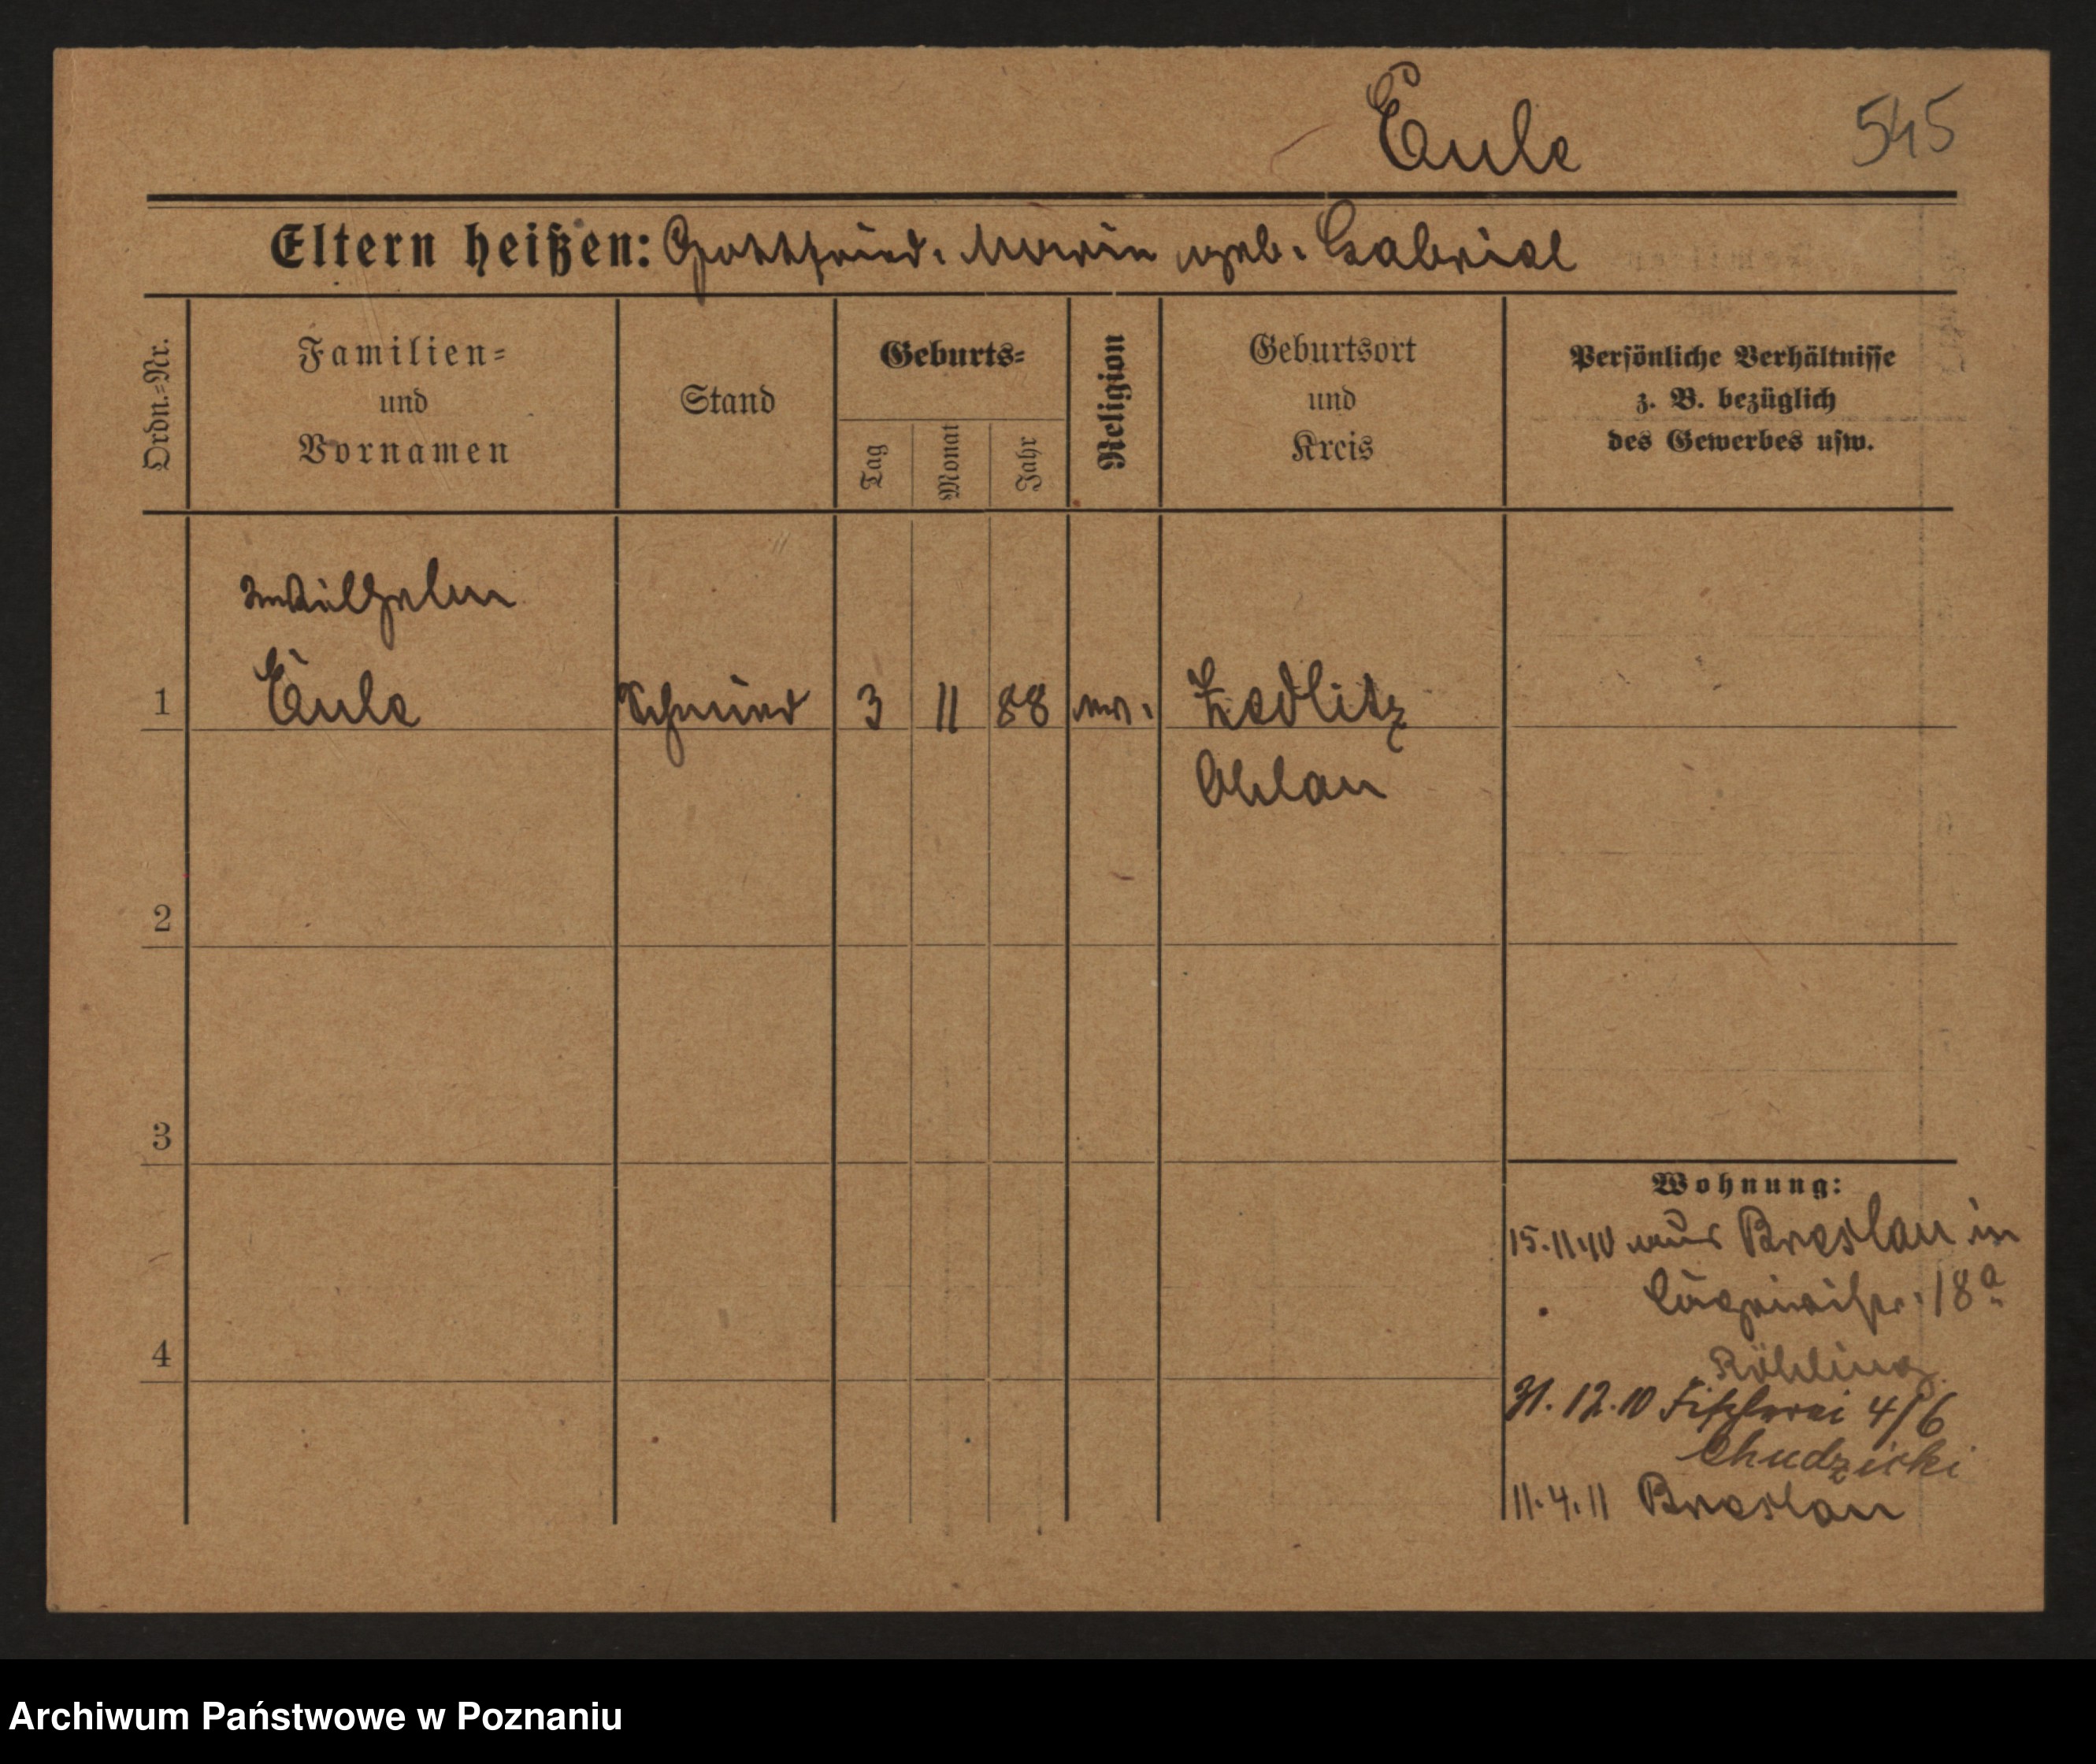 Eule 545
Eltern heißen: Gottfried. Marie geb. Gabriel
Ordn.-Nr.
Familien-
und
Vornamen
Stand
Geburts-
Tag
Monat
Jahr
Religion
Geburtsort
und
Kreis
Persönliche Verhältnisse
z. B. bezüglich
des Gewerbes usw.
Wilhelm
1 Eule Schmied 3 11 88 ev. Zedlitz
Ohlau
2
3
4
Wohnung:
15.11.10 aus Breslau in
18a
Röhling
31.12.10 Fischerei 4/6
Chudzicki
11.4.11 Breslau
Archiwum Państwowe w Poznaniu